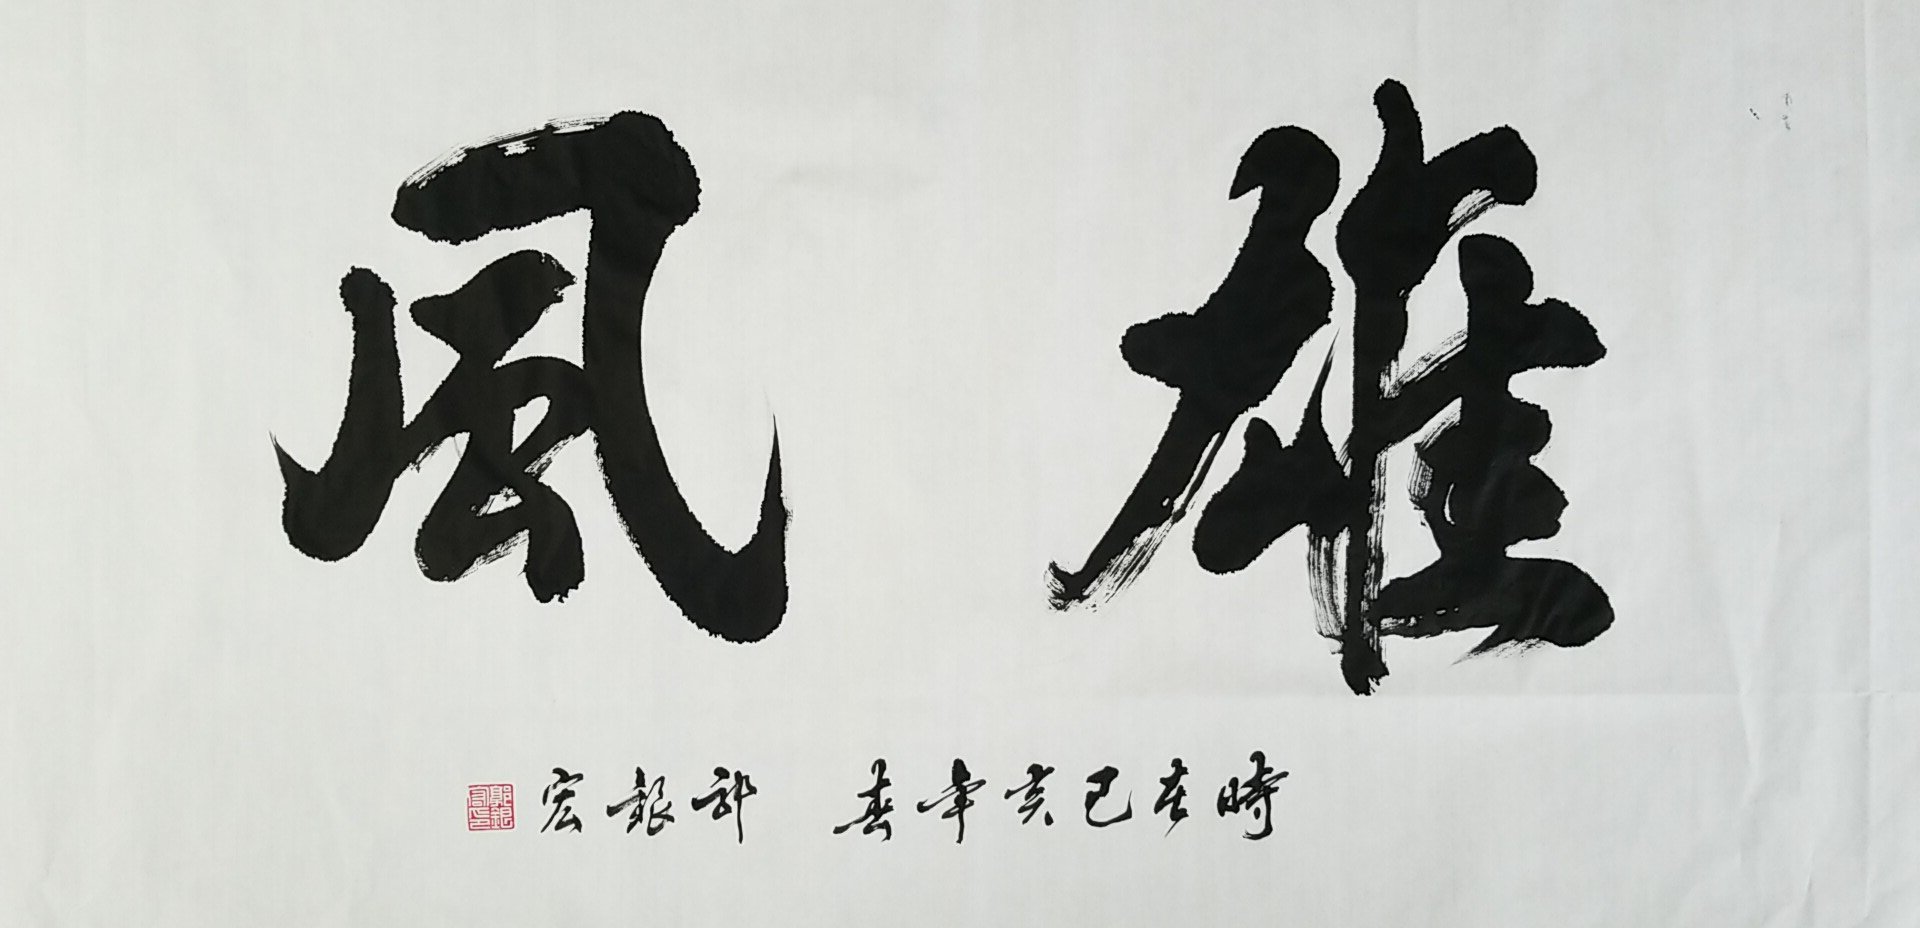 雄風
時在己亥年春 郭銀宏